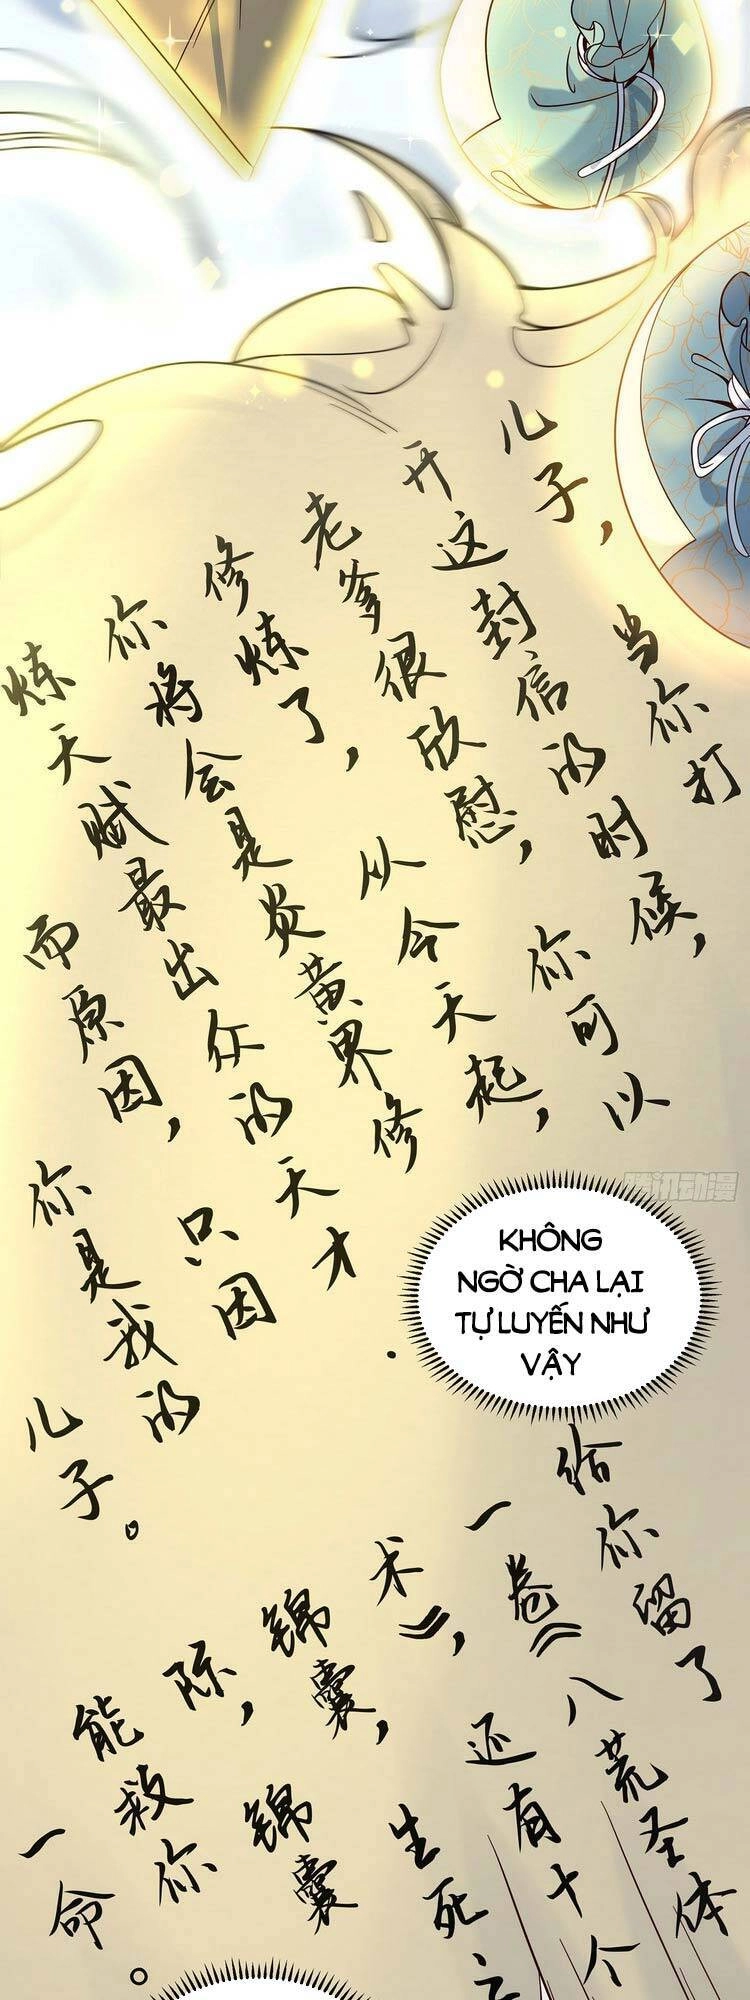 儿子，当你打
开这封信的时候，
老爹很欣慰，你可以
修炼了，从今天起，
你将会是炎黄界修
炼天赋最出众的天才
而原因，只因
你是我的
儿子。
腾讯动漫
KHÔNG
NGỜ CHA LẠI
TỰ LUYẾN NHƯ
VẬY
给你留了
一卷《八荒圣体
术》，还有十个
锦囊，生死之
际，锦囊
能救你
一命。